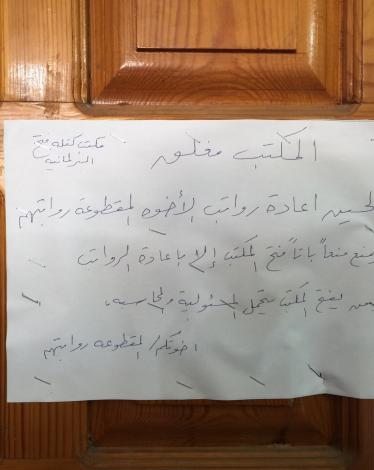 مكتب كتلة فتح
البرلمانية
المكتب مغلق
لحين اعادة رواتب الأخوه المقطوعة رواتبهم
يمنع منعاً باتاً فتح المكتب إلا باعادة الرواتب
يفتح المكتب يتحمل المسئولية والمحاسبه.
اخوتكم / المقطوعه رواتبهم